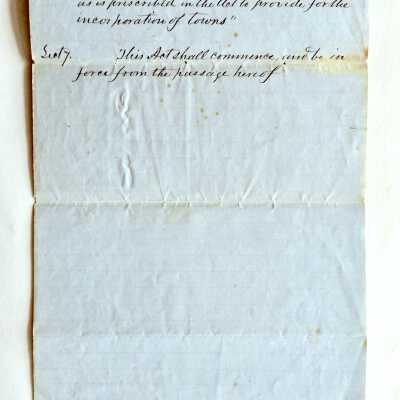 as is prescribed in the Act to provide for the
incorporation of towns"
Sect 7. This Act shall commence, and be in
force from the passage hereof